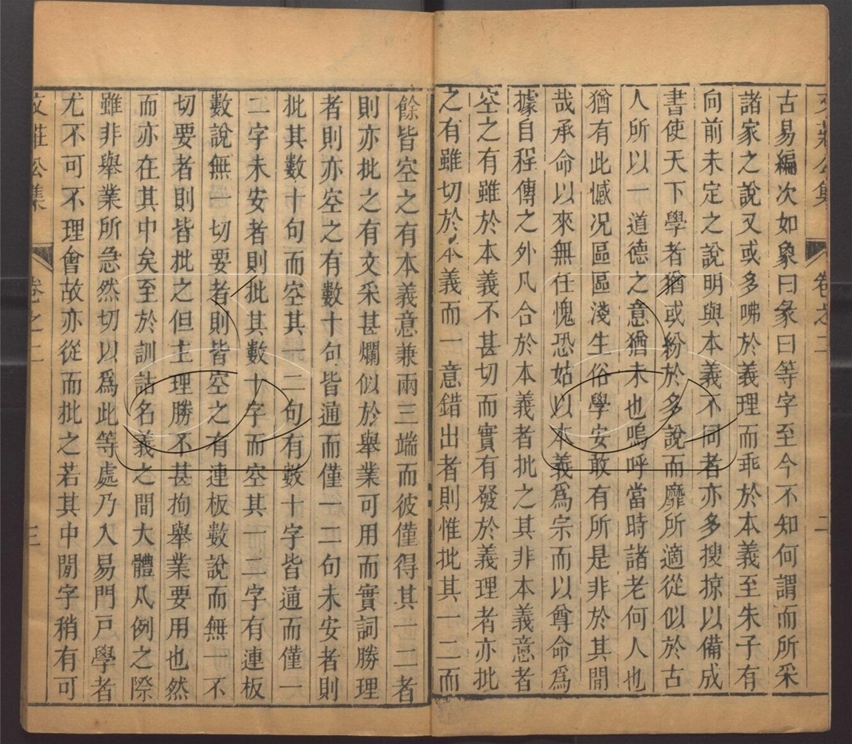 古易編次如象曰彖曰等字至今不知何謂而所采
諸家之說又或多咈於義理而乖於本義至朱子有
向前未定之說明與本義不同者亦多搜掠以備成
書使天下學者猶或紛於多說而靡所適從似於古
人所以一道德之意猶未也嗚呼當時諸老何人也
猶有此憾况區區淺生俗學安敢有所是非於其間
哉承命以來無任愧恐姑以本義爲宗而以尊命爲
據自程傳之外凡合於本義者批之其非本義意者
空之有雖於本義不甚切而實有發於義理者亦批
之有雖切於本義而一意錯出者則惟批其一二而
餘皆空之有本義意兼兩三端而彼僅得其一二者
則亦批之有文采甚爛似於舉業可用而實詞勝理
者則亦空之有數十句皆通而僅一二句未安者則
批其數十句而空其一二句有數十字皆通而僅一
二字未安者則批其數十字而空其一二字有連板
數說無一切要者則皆空之有連板數說而無一不
切要者則皆批之但主理勝不甚拘舉業要用也然
而亦在其中矣至於訓詁名義之間大體凡例之際
雖非舉業所急然切以爲此等處乃入易門戸學者
尤不可不理會故亦從而批之若其中閒字稍有可
文莊公集
卷之二
三